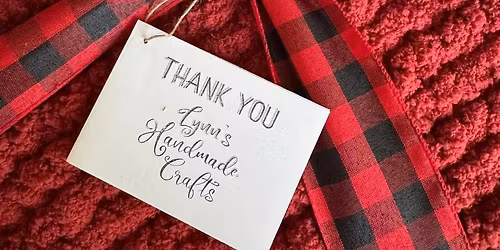 THANK YOU
Lynn's
Handmade
Crafts